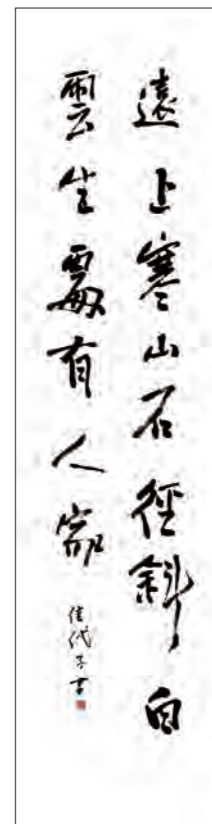 遠上寒山石徑斜白
雲生處有人家
佳代子書